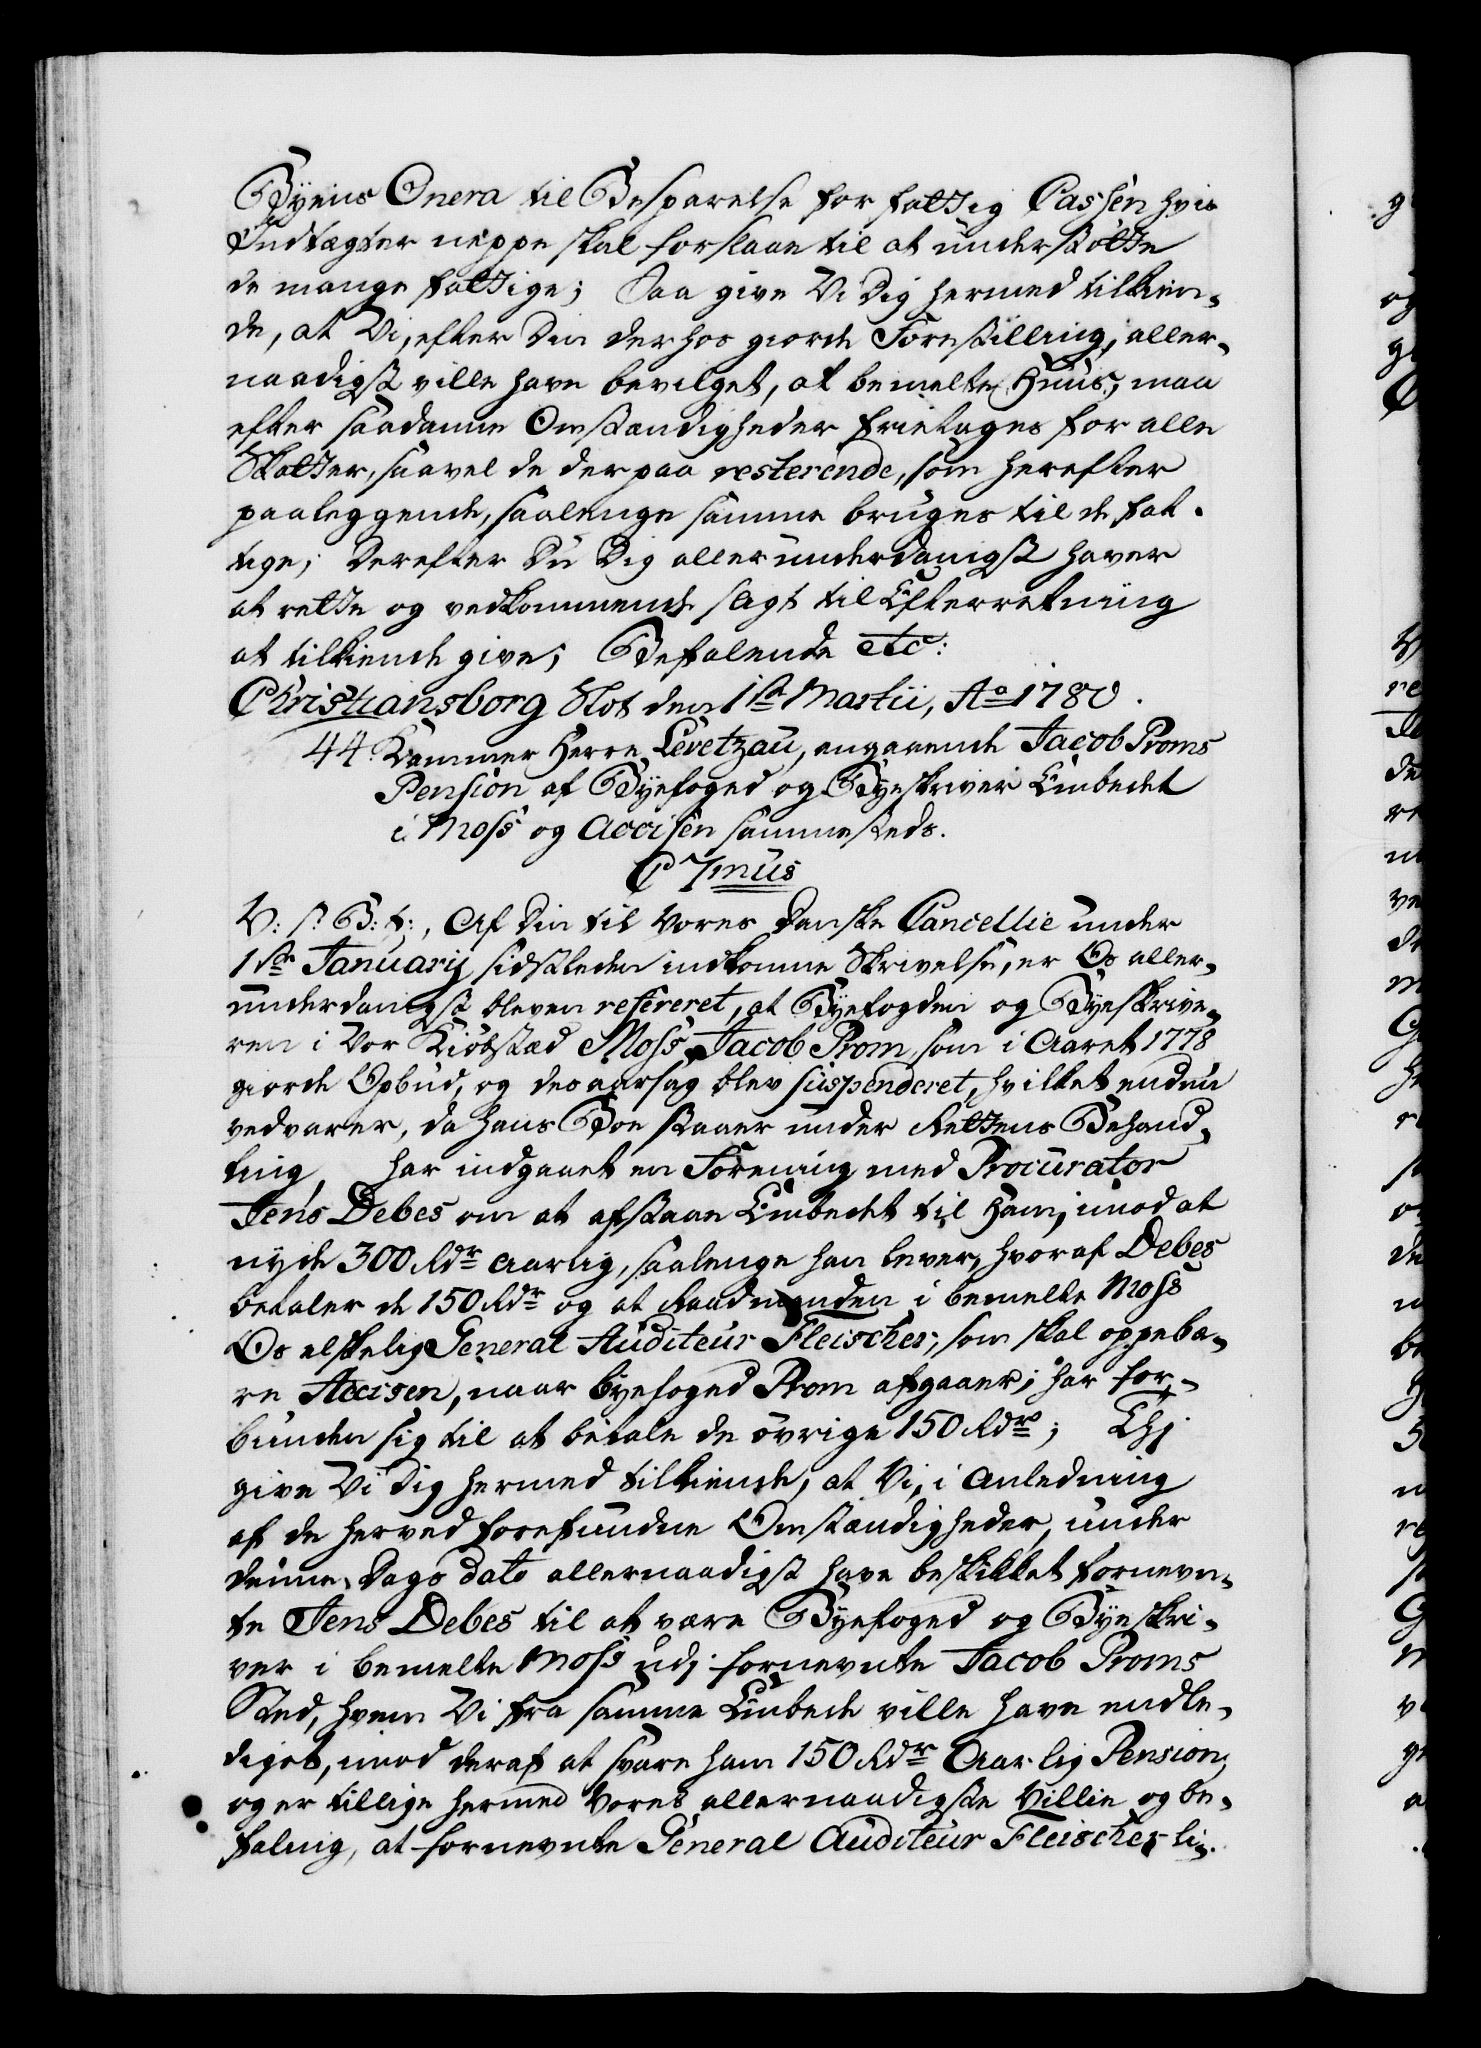 Byens Onera til Besparelse for fattig Cassen hvis
Indtægter neppe skal forslaae til at understøtte
de mange fattige; Saa give Vi Dig hermed tilkien-
de, at Vi, efter Din derhos giorde Forestilling, aller-
naadigst ville have bevilget, at bemelte Huus, maa
efter saadanne Omstændigheder frietages for alle
Skatter, saavel de derpaa resterende, som herefter
paaleggende, saalænge samme bruges til de fat-
tige; Derefter Du Dig allerunderdanigst haver
at rette og vedkommende sligt til Efterretning
at tilkiende give; Befalende etc:
Christiansborg Slot den 1ste Martii, Ao 1780.
44. Kammer Herre Levetzau, angaaende Jacob Proms
Pension af Byefoged og Byeskriver Embedet
i Moss og Accisen sammesteds.
C 7mus
V: s: G: t:, Af Din til Vores Danske Cancellie under
1ste Januarij sidstleden indkomne Skrivelse, er Os aller-
underdanigst bleven refereret, at Byefogden og Byeskrive-
ren i Vor Kiøbstæd Moss, Jacob Prom, som i Aaret 1778
giorde Opbud, og desaarsag blev suspenderet, hvilket endnu
vedvarer, da hans Boe staaer under Rettens Behand-
ling, har indgaaet en Forening med Procurator
Jens Debes om at afstaae Embedet til Ham, imod at
nyde 300 Rdr aarlig, saalænge han lever, hvoraf Debes
betaler de 150 Rdr og at Raadmanden i bemelte Moss
Os elskelig General Auditeur Fleischer, som skal oppebæ-
re Accisen, naar Byefoged Prom afgaaer, har for-
bunden sig til at betale de øvrige 150 Rdr; Thi
give Vi Dig hermed tilkiende, at Vi, i Anledning
af de herved forefundne Omstændigheder, under
denne Dags dato allernaadigst have beskikket fornevn-
te Jens Debes til at være Byefoged og Byeskri-
ver i bemelte Moss udj fornevnte Jacob Proms
Sted, hvem Vi fra samme Embede ville have endle-
diget, imod deraf at svare ham 150 Rdr Aarlig Pension,
og er tillige hermed Vores allernaadigste Villie og be-
faling, at fornevnte General Auditeur Fleischer li-